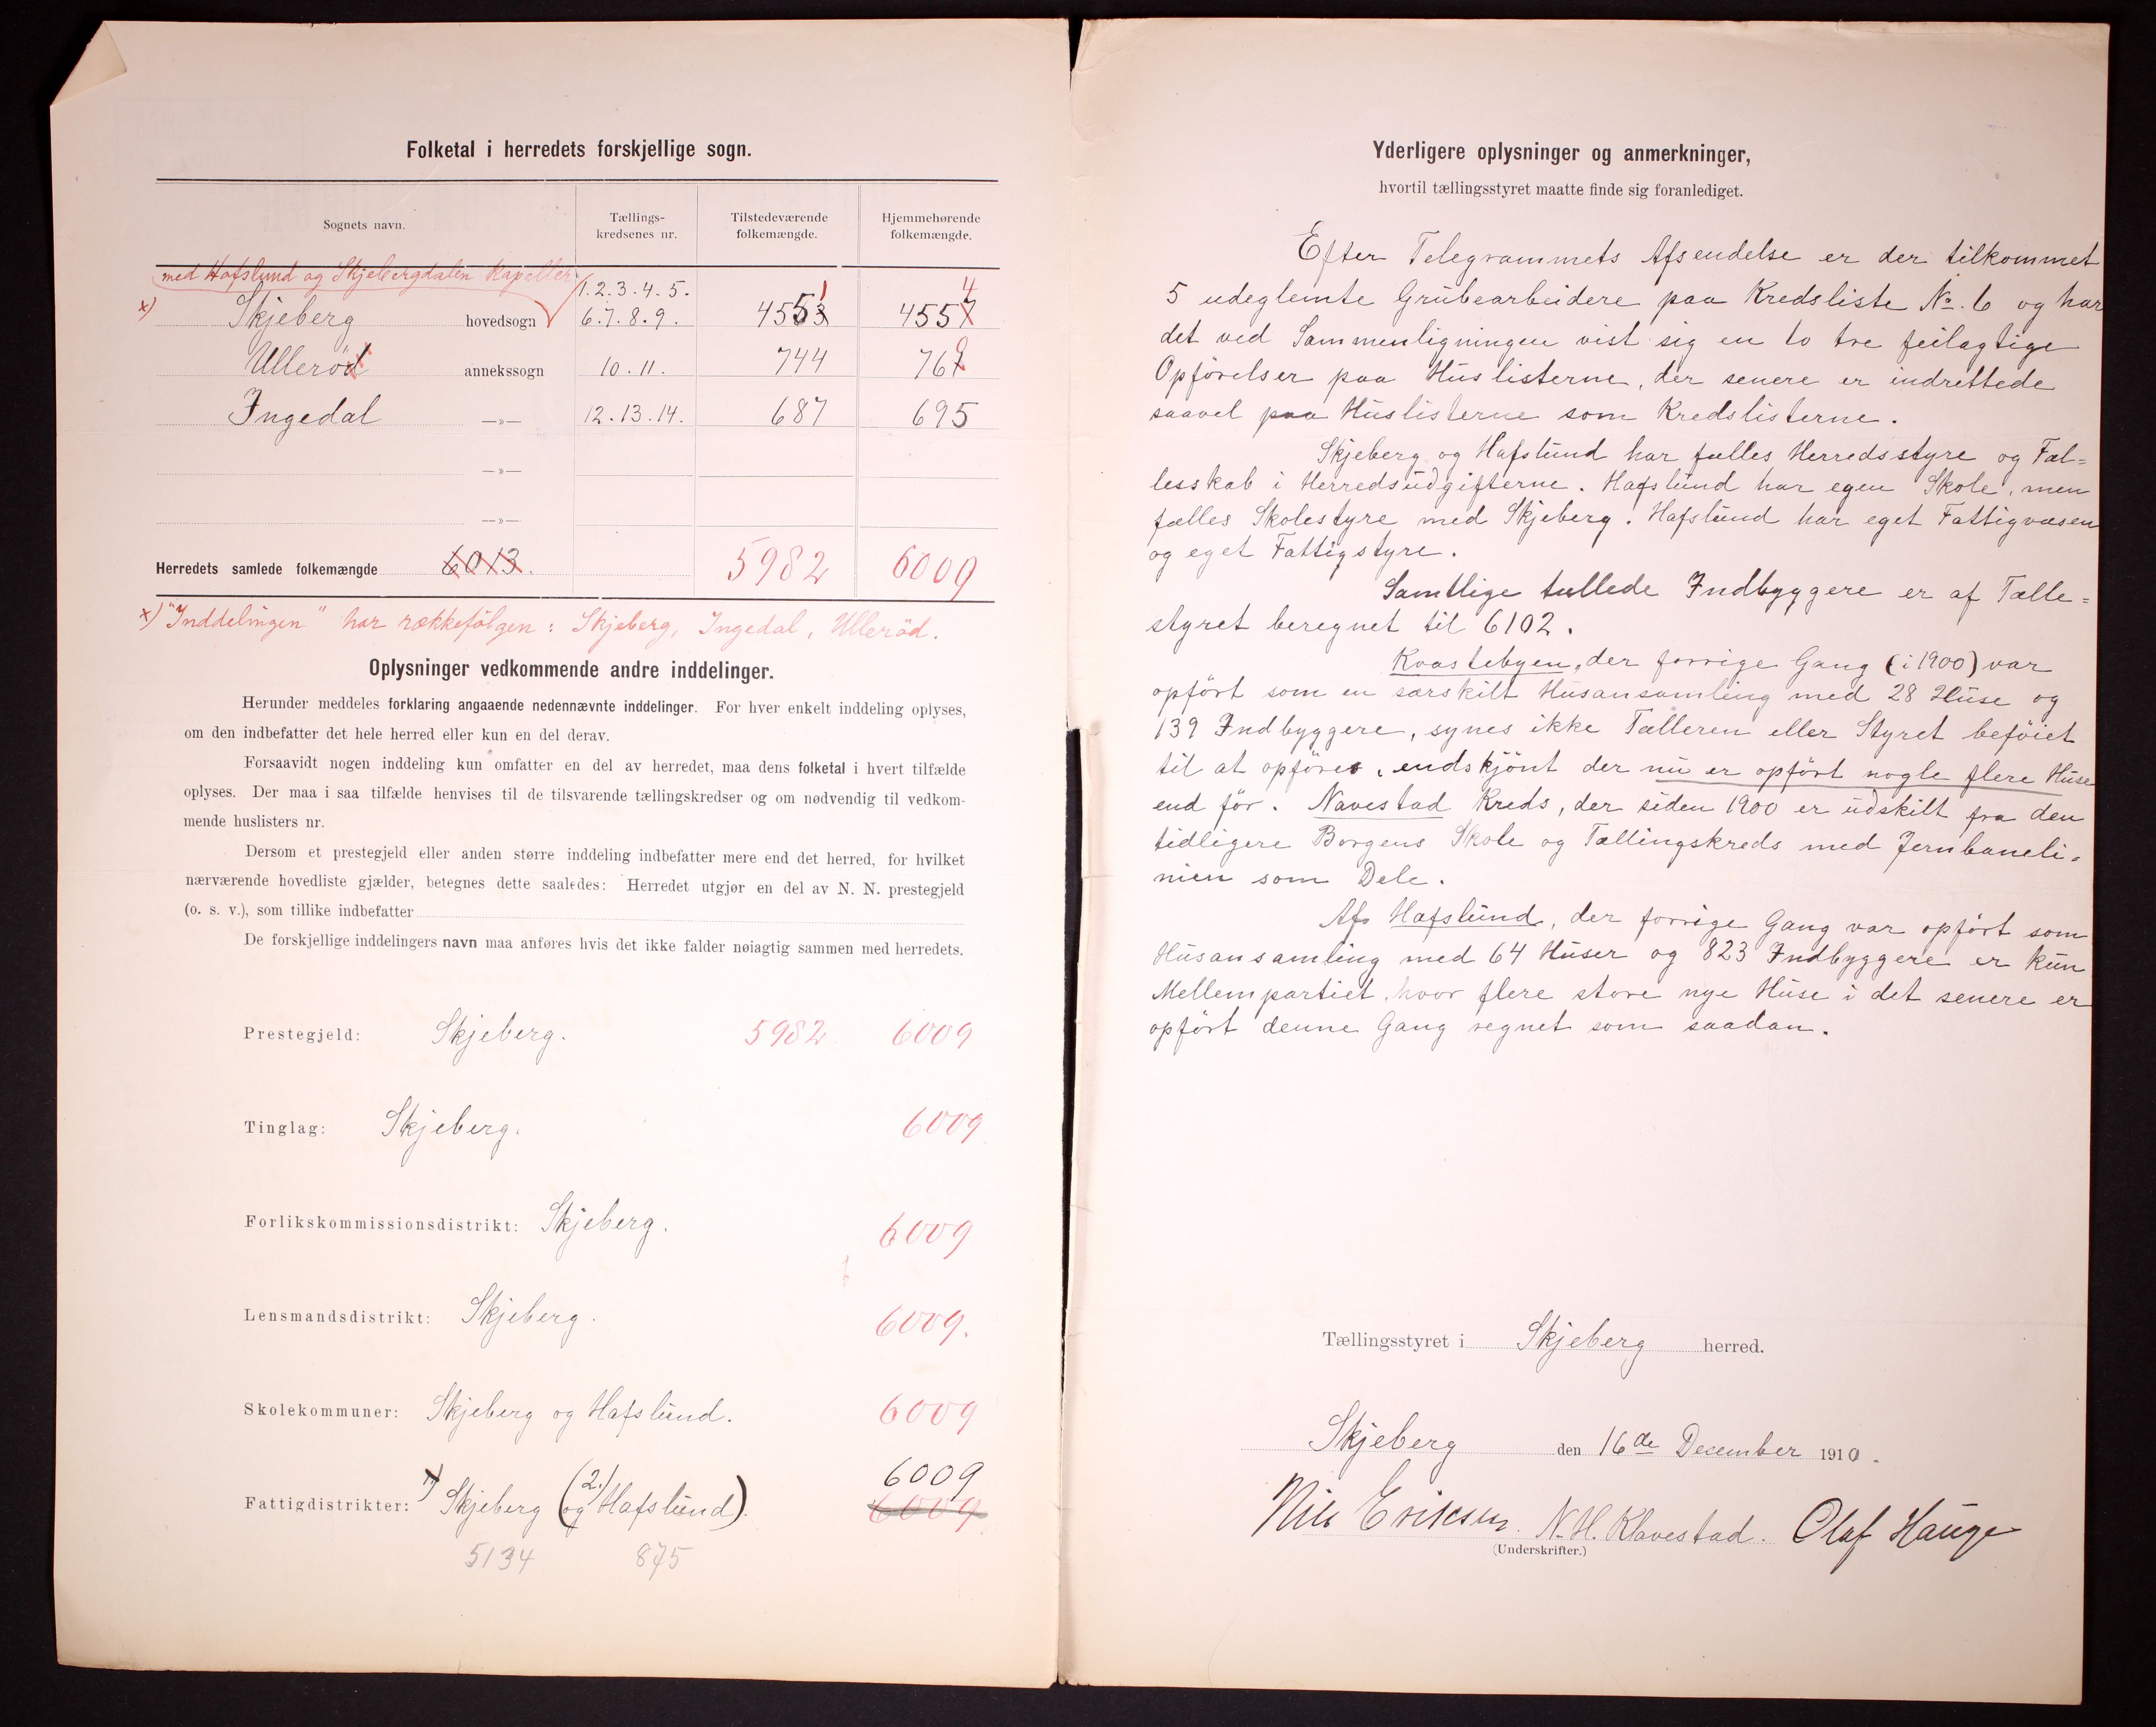 Folketal i herredets forskjellige sogn.
Sognets navn.
Tællings-
kredsenes nr.
Tilstedeværende
folkemængde.
Hjemmehørende
folkemængde.
med Hafslund og Skjebergdalen Kapeller
1. 2. 3. 4. 5.
x) Skjeberg hovedsogn 6. 7. 8. 9. 4553 1 4557 4
Ulleröd annekssogn 10. 11. 744 767 0
Ingedal —»— 12. 13. 14. 687 695
—»—
—»—
Herredets samlede folkemængde 6013. 5982 6009
x) "Inddelingen" har rækkefölgen: Skjeberg, Ingedal, Ulleröd.
Oplysninger vedkommende andre inddelinger.
Herunder meddeles forklaring angaaende nedennævnte inddelinger. For hver enkelt inddeling oplyses,
om den indbefatter det hele herred eller kun en del derav.
Forsaavidt nogen inddeling kun omfatter en del av herredet, maa dens folketal i hvert tilfælde
oplyses. Der maa i saa tilfælde henvises til de tilsvarende tællingskredser og om nødvendig til vedkom-
mende huslisters nr.
Dersom et prestegjeld eller anden større inddeling indbefatter mere end det herred, for hvilket
nærværende hovedliste gjælder, betegnes dette saaledes: Herredet utgjør en del av N. N. prestegjeld
(o. s. v.), som tillike indbefatter
De forskjellige inddelingers navn maa anføres hvis det ikke falder nøiagtig sammen med herredets.
Prestegjeld: Skjeberg. 5982 6009
Tinglag: Skjeberg. 6009
Forlikskommissionsdistrikt: Skjeberg. 6009
Lensmandsdistrikt: Skjeberg. 6009.
Skolekommuner: Skjeberg og Hafslund. 6009
6009
Fattigdistrikter: 1) Skjeberg (og 2) Hafslund). 6009
5134 875
Yderligere oplysninger og anmerkninger,
hvortil tællingsstyret maatte finde sig foranlediget.
Efter Telegrammets Afsendelse er der tilkommet
5 udeglemte Grubearbeidere paa Kredsliste No. 6 og har
det ved Sammenligningen vist sig en to tre feilagtige
Opförelser paa Huslisterne, der senere er indrettede
saavel paa Huslisterne som Kredslisterne.
Skjeberg og Hafslund har fælles Herredsstyre og Fæl=
lesskab i Herredsudgifterne. Hafslund har egen Skole, men
fælles Skolestyre med Skjeberg. Hafslund har eget Fattigvæsen
og eget Fattigstyre.
Samtlige tællede Indbyggere er af Tælle=
styret beregnet til 6102.
Kvastebyen, der forrige Gang (i 1900) var
opfört som en særskilt Husansamling med 28 Huse og
139 Indbyggere, synes ikke Tælleren eller Styret beföiet
til at opföres, endskjönt der nu er opfört nogle flere Huse
end för. Navestad Kreds, der siden 1900 er udskilt fra den
tidligere Borgens Skole og Tællingskreds med Jernbaneli=
nien som Dele.
Af Hafslund, der forrige Gang var opfört som
Husansamling med 64 Huser og 823 Indbyggere er kun
Mellempartiet, hvor flere store nye Huse i det senere er
opfört denne Gang regnet som saadan.
Tællingsstyret i Skjeberg herred.
Skjeberg den 16de December 1910.
Nils Eriksen. N. H. Klavestad. Olaf Hauge
(Underskrifter.)